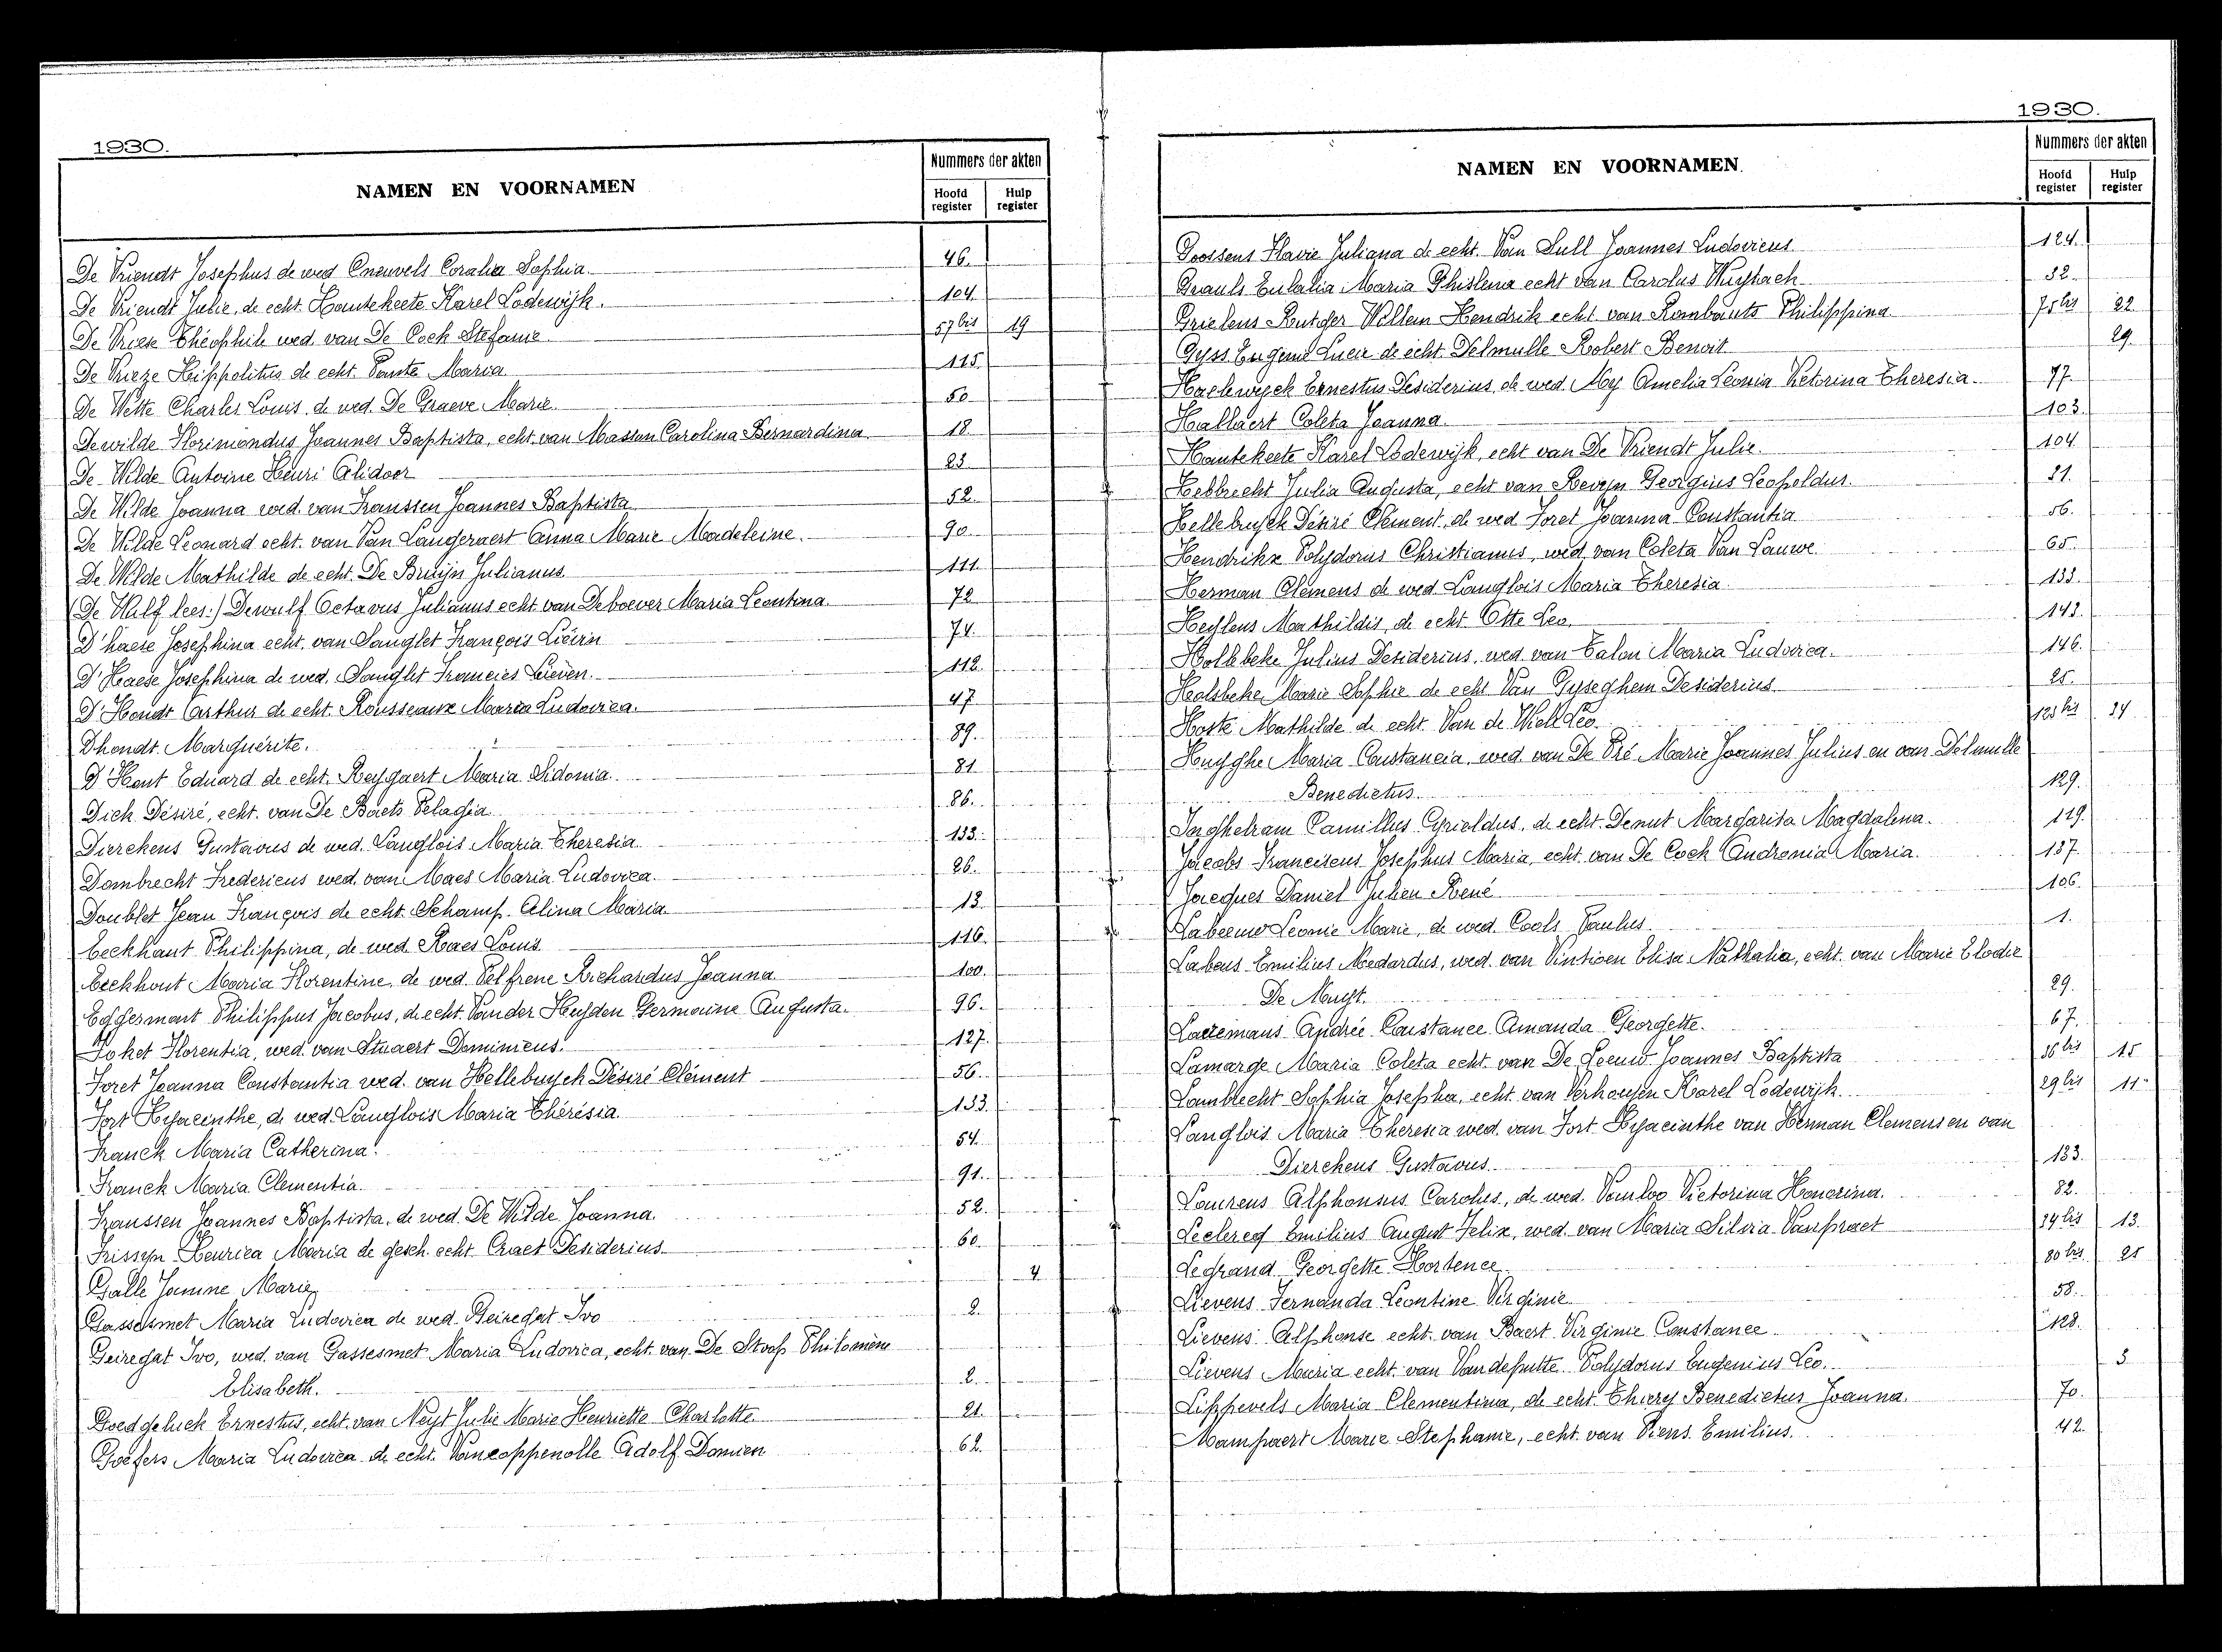 1930.
NAMEN EN VOORNAMEN
Nummers der akten
Hoofd register
Hulp register
De Vriendt Josephus de wed Cneuvels Coralia Sophia. 46.
De Vriendt Julie, de echt. Hautekeete Karel Lodewijk. 104.
De Vriese Théophile wed. van De Cock Stefanie. 57 bis 19
De Vrieze Hippolitus de echt. Pauste Maria. 115.
De Wette Charles Louis, de wed. De Graeve Marie. 50
Dewilde Florimondus Joannes Baptista, echt. van Masson Carolina Bernardina 18.
De Wilde Antoine Henri Alidoor 23
De Wilde Joanna wed. van Franssen Joannes Baptista 52.
De Wilde Leonard echt. van Van Langeraert Anna Marie Madeleine. 90
De Wilde Mathilde de echt. De Bruijn Julianus. 111.
(De Wulf lees:) Dewulf Octavus Julianus echt van Deboever Maria Leontina. 72
D'haese Josephina echt. van Sanglet François Liévin 74.
D'Haese Josephina de wed. Sanglet Francies Lieven. 112.
D'Hondt Carthur de echt. Rousseaux Maria Ludovica. 47
Dhondt Marguérite. 89.
D'Hont Eduard de echt. Reygaert Maria Sidonia. 81
Dick Désiré, echt. van De Baets Pelagia 86.
Dierckens Gustavus de wed. Langlois Maria Theresia 133.
Dombrecht Fredericus wed. van Maes Maria Ludovica 26.
Doublet Jean François de echt. Schamp Alina Maria. 13.
Eeckhaut Philippina, de wed. Raes Louis. 116.
Eeckhout Maria Florentine, de wed. Pelfrene Richardus Joanna 100.
Eggermont Philippus Jacobus, de echt. Vander Heyden Germaine Augusta. 96.
Foket Florentia, wed. van Stuaert Dominicus. 127.
Foret Joanna Constantia wed. van Hellebuyck Désiré Clément 56.
Fort Hyacinthe, de wed. Langlois Maria Thérésia. 133
Franck Maria Catherina. 54.
Franck Maria Clementia. 91.
Franssen Joannes Baptista. de wed. De Wilde Joanna. 52.
Frissyn Henrica Maria de gesch. echt. Craet Desiderius. 60.
Galle Jannine Marie 4
Gassesmet Maria Ludovica de wed. Geiregat Ivo 2.
Geiregat Ivo, wed. van Gassesmet Maria Ludovica, echt. van De Stoop Philomène
Elisabeth. 2.
Goedgeluck Ernestus, echt. van Neyt Julie Marie Henriette Charlotte 21.
Goefers Maria Ludovica de echt. Vancoppenolle Adolf Damien 62.
1930.
NAMEN EN VOORNAMEN
Nummers der akten
Hoofd register
Hulp register
Goossens Flavie Juliana de echt. Van Lull Joannes Ludovicus 124.
Grauls Eulalia Maria Ghislena echt van Carolus Wuytack 32.
Grielens Rutger Willem Hendrik echt. van Rombauts Philippina 75 bis 22
Gyss Eugenie Lucie de echt. Delmulle Robert Benoit 29.
Haelewyck Ernestus Desiderius, de wed. My Amelia Leonia Vetorina Theresia. 77
Hallaert Coleta Joanna. 103.
Hautekeete Karel Lodewijk, echt van De Vriendt Julie. 104.
Hebbrecht Julia Augusta, echt van Revyn Georgius Leopoldus. 31.
Hellebuyck Désiré Clément, de wed Foret Joanna Constantia 56.
Hendrikx Polydorus Christianus, wed. van Coleta Van Lauwe 65.
Herman Clemens de wed Langlois Maria Theresia 133.
Heylens Mathildis, de echt Otte Leo. 143.
Hollebeke Julius Desiderius, wed. van Talon Maria Ludovica. 146.
Holsbeke Marie Sophie de echt Van Gyseghem Desiderius. 25.
Hoste Mathilde de echt. Van de Wiele Leo. 123 bis 34
Huyghe Maria Constancia, wed. van De Pré Marie Joannes Julius en van Delmulle
Benedictus. 129.
Inghelram Camillus Cyrieldus, de echt. Denut Margarita Magdalena. 119.
Jacobs Franciscus Josephus Maria, echt. van De Cock Andronia Maria. 137.
Jacques Daniel Julien René 106.
Labeeuw Leonie Marie, de wed. Cools Paulus. 1.
Labeus Emilius Medardus, wed. van Vintioen Elisa Nathalia, echt. van Marie Elodie
De Muyt. 29.
Lacremans Andrée Constance Amanda Georgette. 67.
Lamarge Maria Coleta echt. van De Leeuw Joannes Baptista 36 bis 15
Lambrecht Sophia Josepha, echt. van Verhoeyen Karel Lodewijk. 29 bis 11
Langlois Maria Theresia wed. van Fort Hyacinthe van Herman Clemens en van
Dierckens Gustavus. 133.
Laurens Alphonsus Carolus, de wed. Vanloo Victorina Honorina. 82.
Leclercq Emilius August Felix, wed. van Maria Silvia Vanpraet 34 bis 13.
Legrand Georgette Hortence. 80 bis 25
Lievens Fernanda Leontine Virginie. 58.
Lievens Alphonse echt. van Baert Virginie Constance 128.
Lievens Maria echt. van Vandeputte Polydorus Eugenius Leo. 3
Lippevels Maria Clementina, de echt. Thiery Benedictus Joanna. 70.
Mampaert Marie Stephanie, echt. van Piens Emilius. 42.